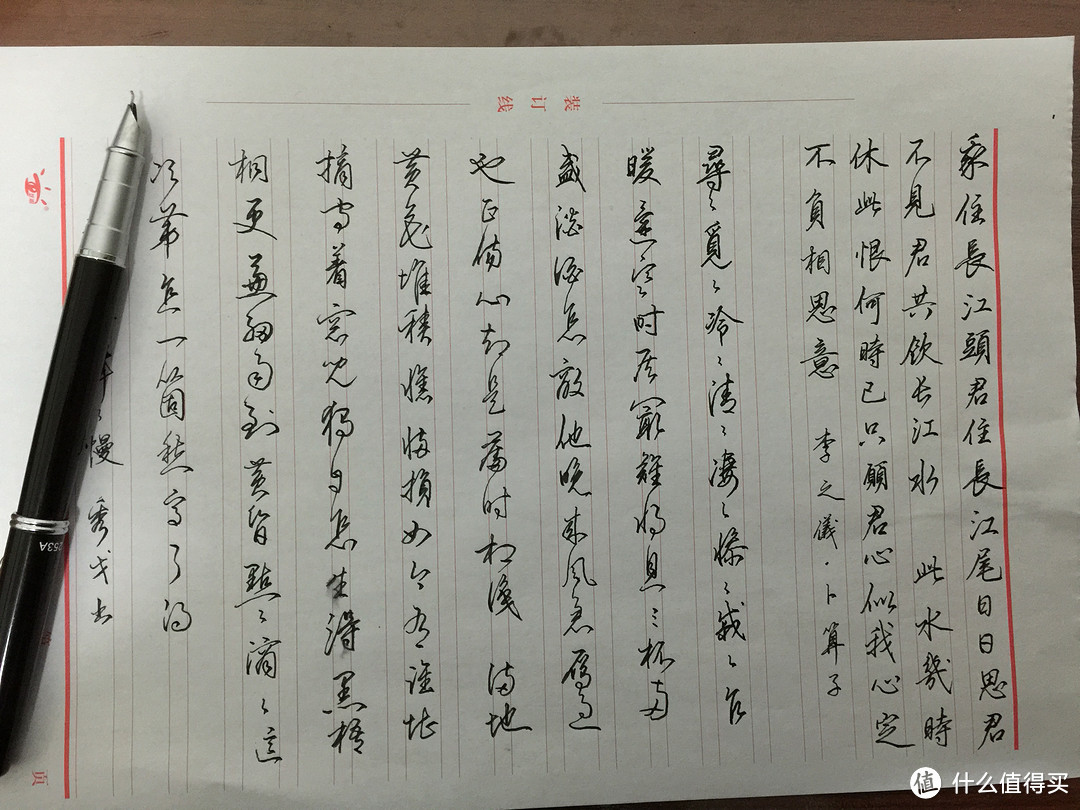 装订线
我住長江頭君住長江尾日日思君
不見君共飲长江水 此水幾時
休此恨何時已只願君心似我心定
不負相思意 李之儀·卜算子
尋〻覓〻冷〻清〻凄〻慘〻戚〻乍
暖還寒〻时候最難将息三杯两
盏淡酒怎敵他晚来风急雁过
也正傷心却是舊时相識 满地
黄花堆積憔悴損如今有谁堪
摘守着窓兒獨自怎生得黑梧
桐更兼細雨到黄昏點〻滴〻這
次第怎一箇愁字了得
慢 秀戈书
页
253A
值 什么值得买